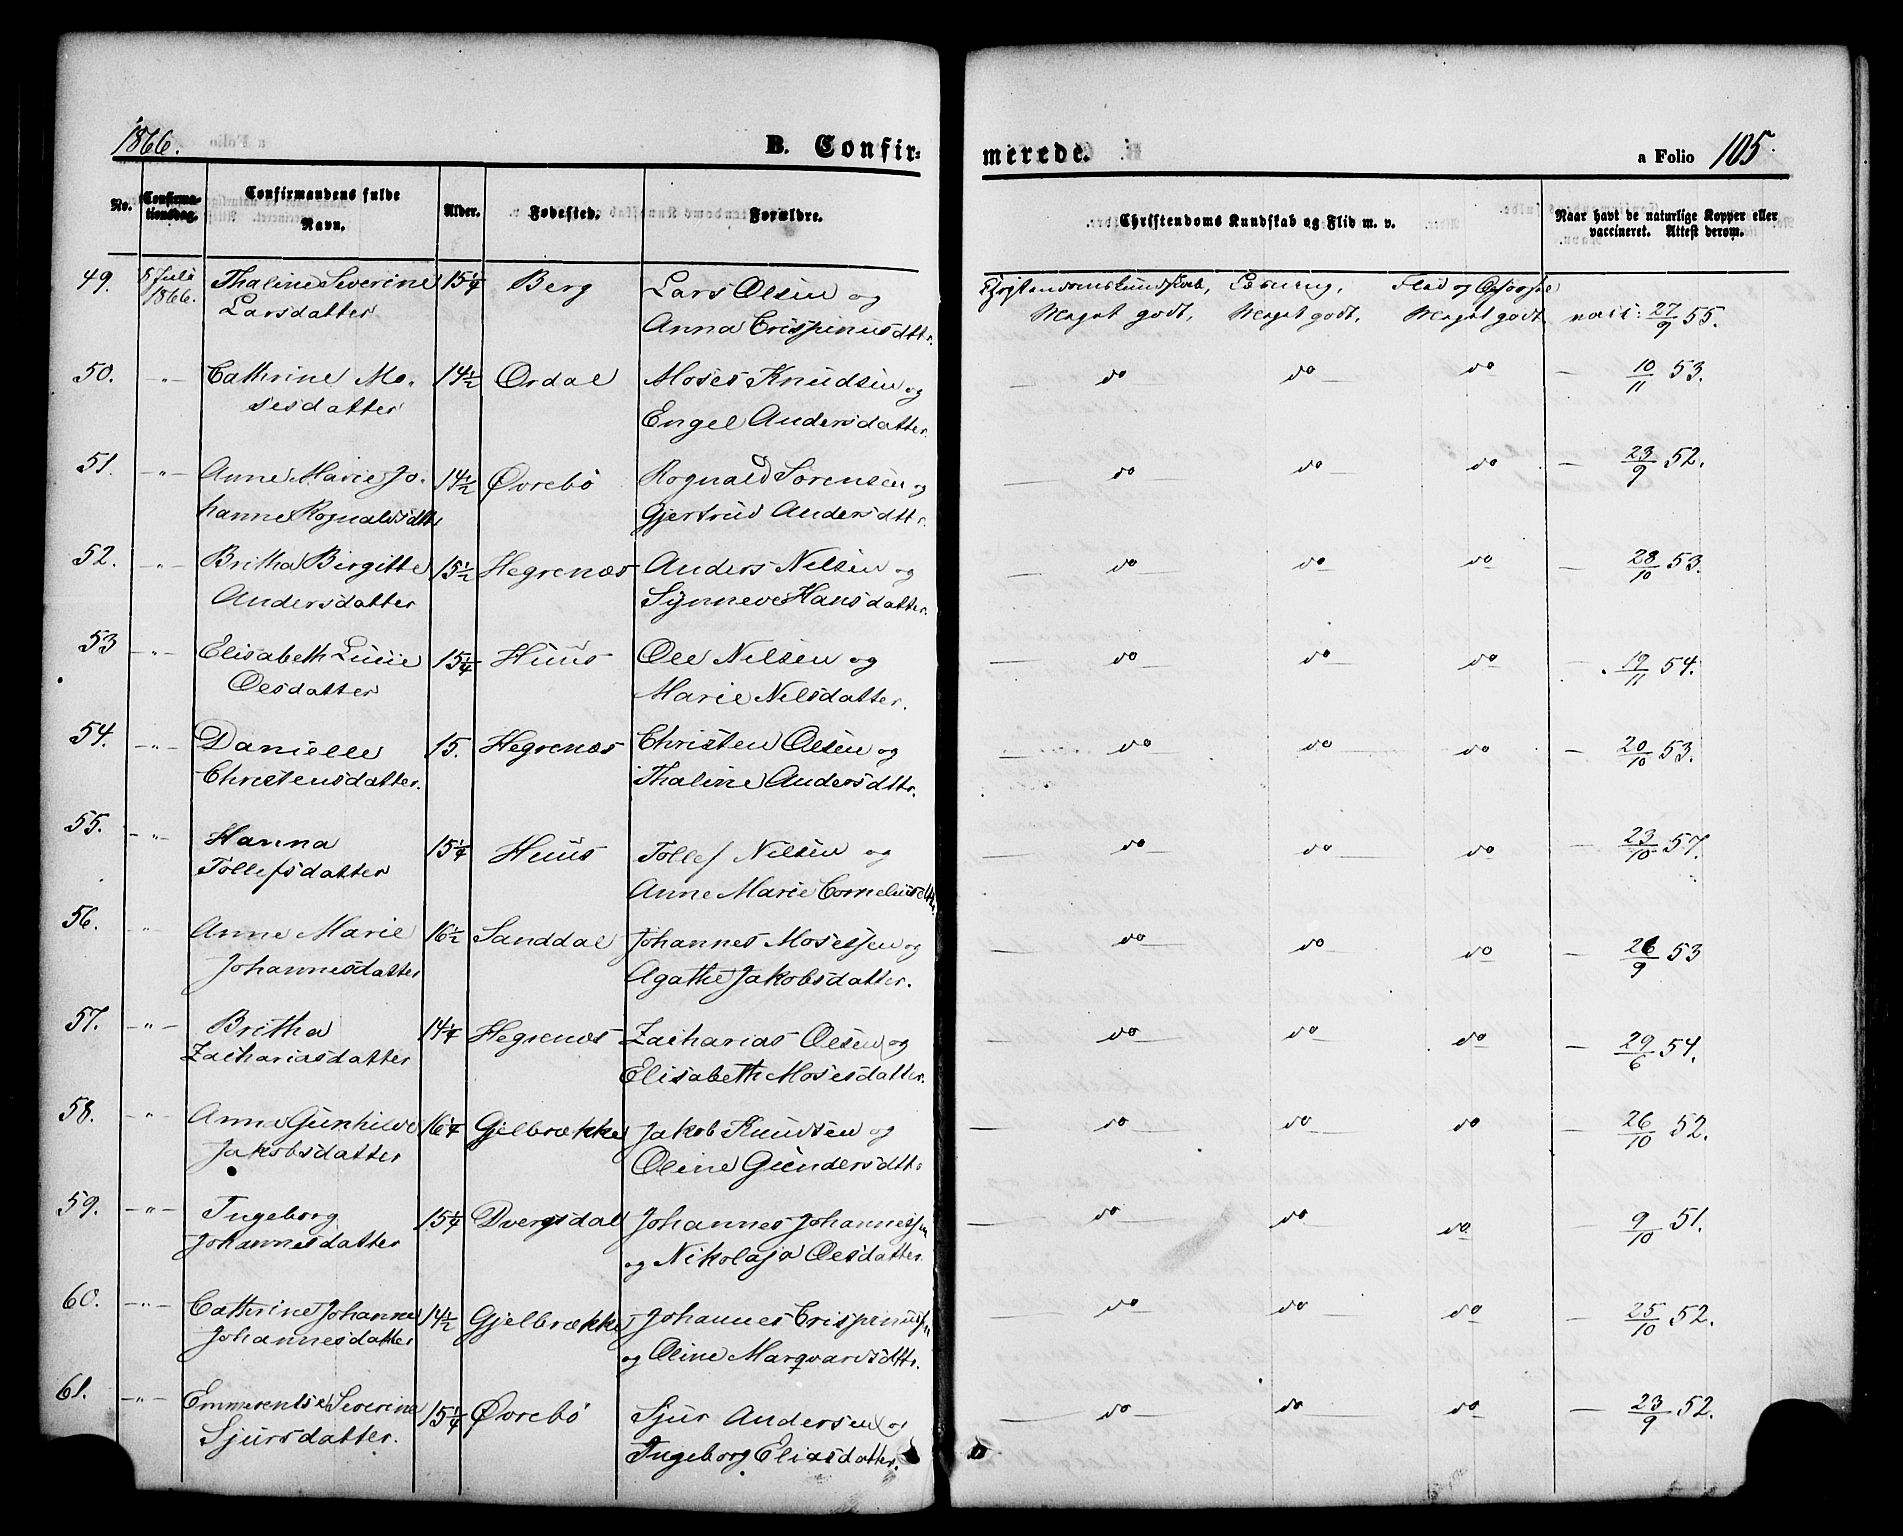 1866.
B. Confirmerede.
a Folio 105.
No.
Confirmationsdag.
Confirmandens fulde Navn.
Alder.
Fødested.
Forældre.
Christendoms Kundskab og Flid m. v.
Naar havt de naturlige Kopper eller vaccineret. Attest derom.
49. 8 Juli Thaline Severine 15 1/4 Berg Lars Olsen og Flid og Opførsel
1866. Larsdatter Anna Crispinusdttr. Meget godt, Meget godt. Meget godt 27/9 55.
50. -"- Cathrine Mo- 14 1/2 Ordal Moses Knudsen og do do do - 10/11 53.
sesdatter Engel Andersdatter.
51. -"- Anne Marie Jo- 14 1/2 Øvrebö Rognald Sørensen og do do do - 23/9 52.
hanne Rognaldsdttr Gjertrud Andersdttr.
52. -"- Britha Birgitte 15 1/2 Hegrenæs Anders Nilsen og do do do - 28/10 53.
Andersdatter Synneve Hansdatter.
53 -"- Elisabeth Lucie 15 1/4 Huus Ole Nilsen og do do do - 19/11 54.
Olsdatter Marie Nilsdatter.
54. -"- Danielle 15. Hegrenæs Christen Olsen og do do do - 20/10 53.
Christensdatter. Thaline Andersdttr.
55. -"- Hanna 15 1/4 Huus Tollef Nilsen og do do do - 23/10 57.
Tollefsdatter Anne Marie Corneliusdttr.
56. -"- Anne Marie 16 1/2 Sanddal Johannes Mosessen og do do do - 26/9 53
Johannesdatter Agathe Jakobsdatter.
57. -"- Britha 14 1/4 Hegrenæs Zacharias Olsen og do do do - 29/6 54.
Zachariasdatter Elisabeth Mosesdatter.
58. -"- Anne Gunhilde 16 1/4 Gjelbrække Jakob Knudsen og do do do - 26/10 52.
Jakobsdatter Oline Gundersdttr
59. -"- Ingeborg 15 1/4 Dvergsdal Johannes Johannessen do do do - 9/10 51.
Johannesdatter og Nikolaja Olsdatter.
60. -"- Cathrine Johanne 14 1/2 Gjelbrække Johannes Crispinussen do do do - 25/10 52.
Johannesdatter og Oline Marqvardsdttr.
61. -"- Emmerentse Severine 15 1/4 Øvrebö Sjur Andersen og do do do - 23/9 52.
Sjursdatter. Ingeborg Eliasdatter.